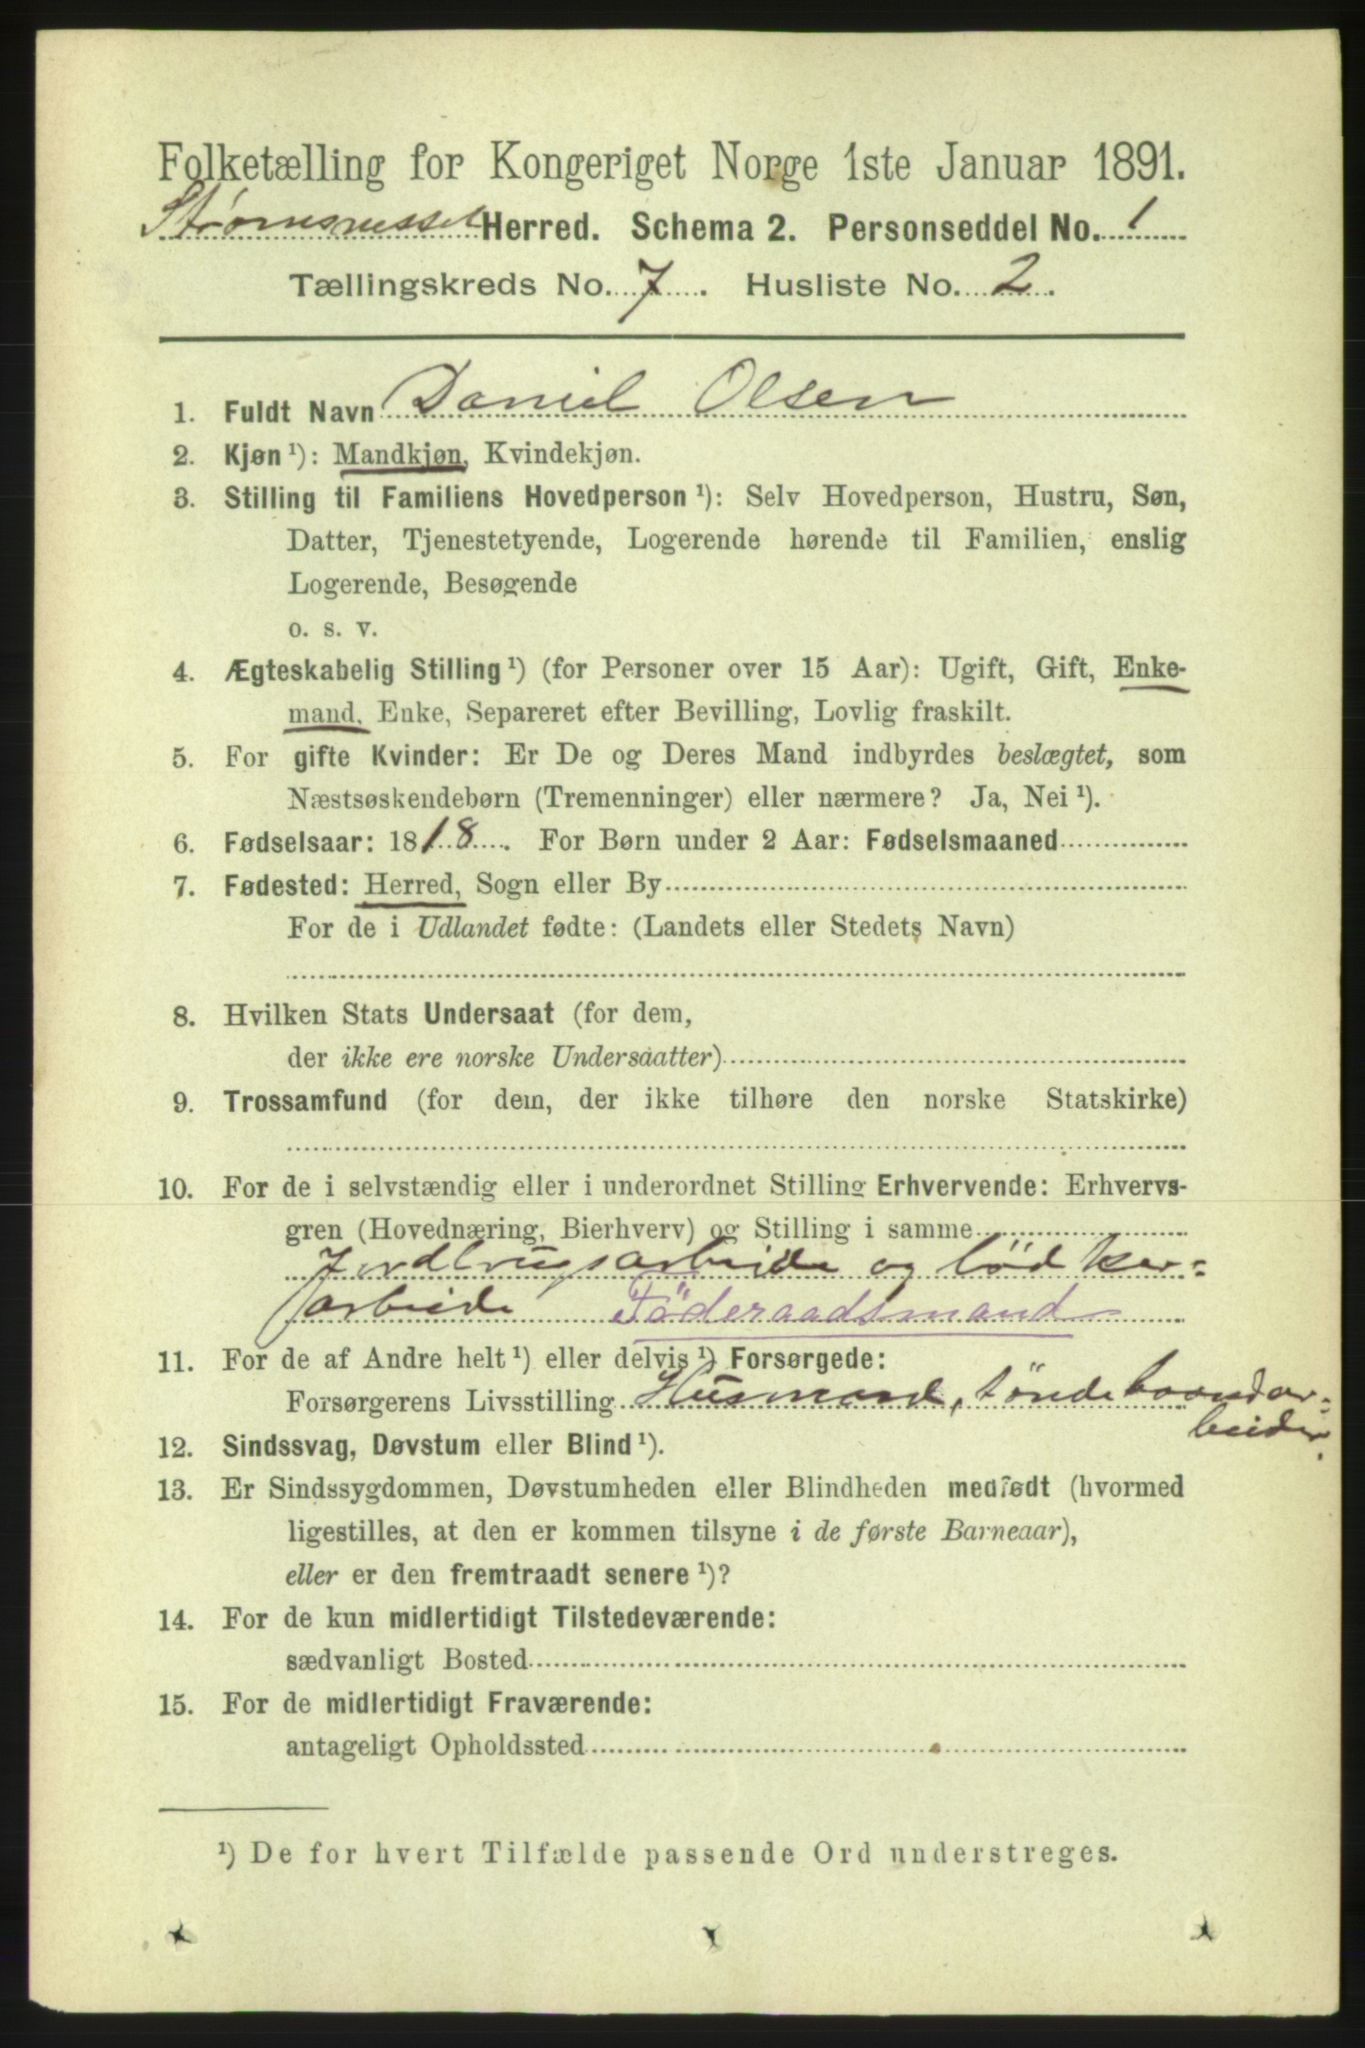 Folketælling for Kongeriget Norge 1ste Januar 1891.
Strømsnesset Herred. Schema 2. Personseddel No. 1
Tællingskreds No. 7. Husliste No. 2.
1. Fuldt Navn Daniel Olsen
2. Kjøn ¹): Mandkjøn, Kvindekjøn.
3. Stilling til Familiens Hovedperson ¹): Selv Hovedperson, Hustru, Søn,
Datter, Tjenestetyende, Logerende hørende til Familien, enslig
Logerende, Besøgende
o. s. v.
4. Ægteskabelig Stilling ¹) (for Personer over 15 Aar): Ugift, Gift, Enke-
mand, Enke, Separeret efter Bevilling, Lovlig fraskilt.
5. For gifte Kvinder: Er De og Deres Mand indbyrdes beslægtet, som
Næstsøskendebørn (Tremenninger) eller nærmere? Ja, Nei ¹).
6. Fødselsaar: 1818. For Børn under 2 Aar: Fødselsmaaned
7. Fødested: Herred, Sogn eller By
For de i Udlandet fødte: (Landets eller Stedets Navn)
8. Hvilken Stats Undersaat (for dem,
der ikke ere norske Undersaatter)
9. Trossamfund (for dem, der ikke tilhøre den norske Statskirke)
10. For de i selvstændig eller i underordnet Stilling Erhvervende: Erhvervs-
gren (Hovednæring, Bierhverv) og Stilling i samme
Jordbrugsarbeide og bödker=
arbeide Föderaadsmand
11. For de af Andre helt ¹) eller delvis ¹) Forsørgede:
Forsørgerens Livsstilling Husmand, töndebaandar=
beider.
12. Sindssvag, Døvstum eller Blind ¹).
13. Er Sindssygdommen, Døvstumheden eller Blindheden medfødt (hvormed
ligestilles, at den er kommen tilsyne i de første Barneaar),
eller er den fremtraadt senere ¹)?
14. For de kun midlertidigt Tilstedeværende:
sædvanligt Bosted
15. For de midlertidigt Fraværende:
antageligt Opholdssted
¹) De for hvert Tilfælde passende Ord understreges.